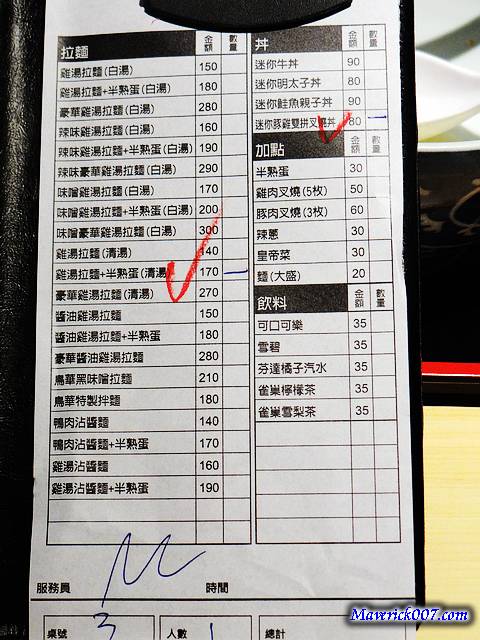 拉麵 金額 數量
雞湯拉麵(白湯) 150
雞湯拉麵+半熟蛋(白湯) 180
豪華雞湯拉麵(白湯) 280
辣味雞湯拉麵(白湯) 160
辣味雞湯拉麵+半熟蛋(白湯) 190
辣味豪華雞湯拉麵(白湯) 290
味噌雞湯拉麵(白湯) 170
味噌雞湯拉麵+半熟蛋(白湯) 200
味噌豪華雞湯拉麵(白湯) 300
雞湯拉麵(清湯) 140
雞湯拉麵+半熟蛋(清湯) 170 一
豪華雞湯拉麵(清湯) 270
醬油雞湯拉麵 150
醬油雞湯拉麵+半熟蛋 180
豪華醬油雞湯拉麵 280
鳥華黑味噌拉麵 210
鳥華特製拌麵 180
鴨肉沾醬麵 140
鴨肉沾醬麵+半熟蛋 170
雞湯沾醬麵 160
雞湯沾醬麵+半熟蛋 190
丼 金額 數量
迷你牛丼 90
迷你明太子丼 80
迷你鮭魚親子丼 90
迷你豚雞雙拼叉燒丼 80 一
加點 金額 數量
半熟蛋 30
雞肉叉燒(5枚) 50
豚肉叉燒(3枚) 60
辣蔥 30
皇帝菜 30
麵(大盛) 20
飲料 金額 數量
可口可樂 35
雪碧 35
芬達橘子汽水 35
雀巢檸檬茶 35
雀巢雪梨茶 35
服務員 時間
桌號 3 人數 1 總計
Mawrick007.com